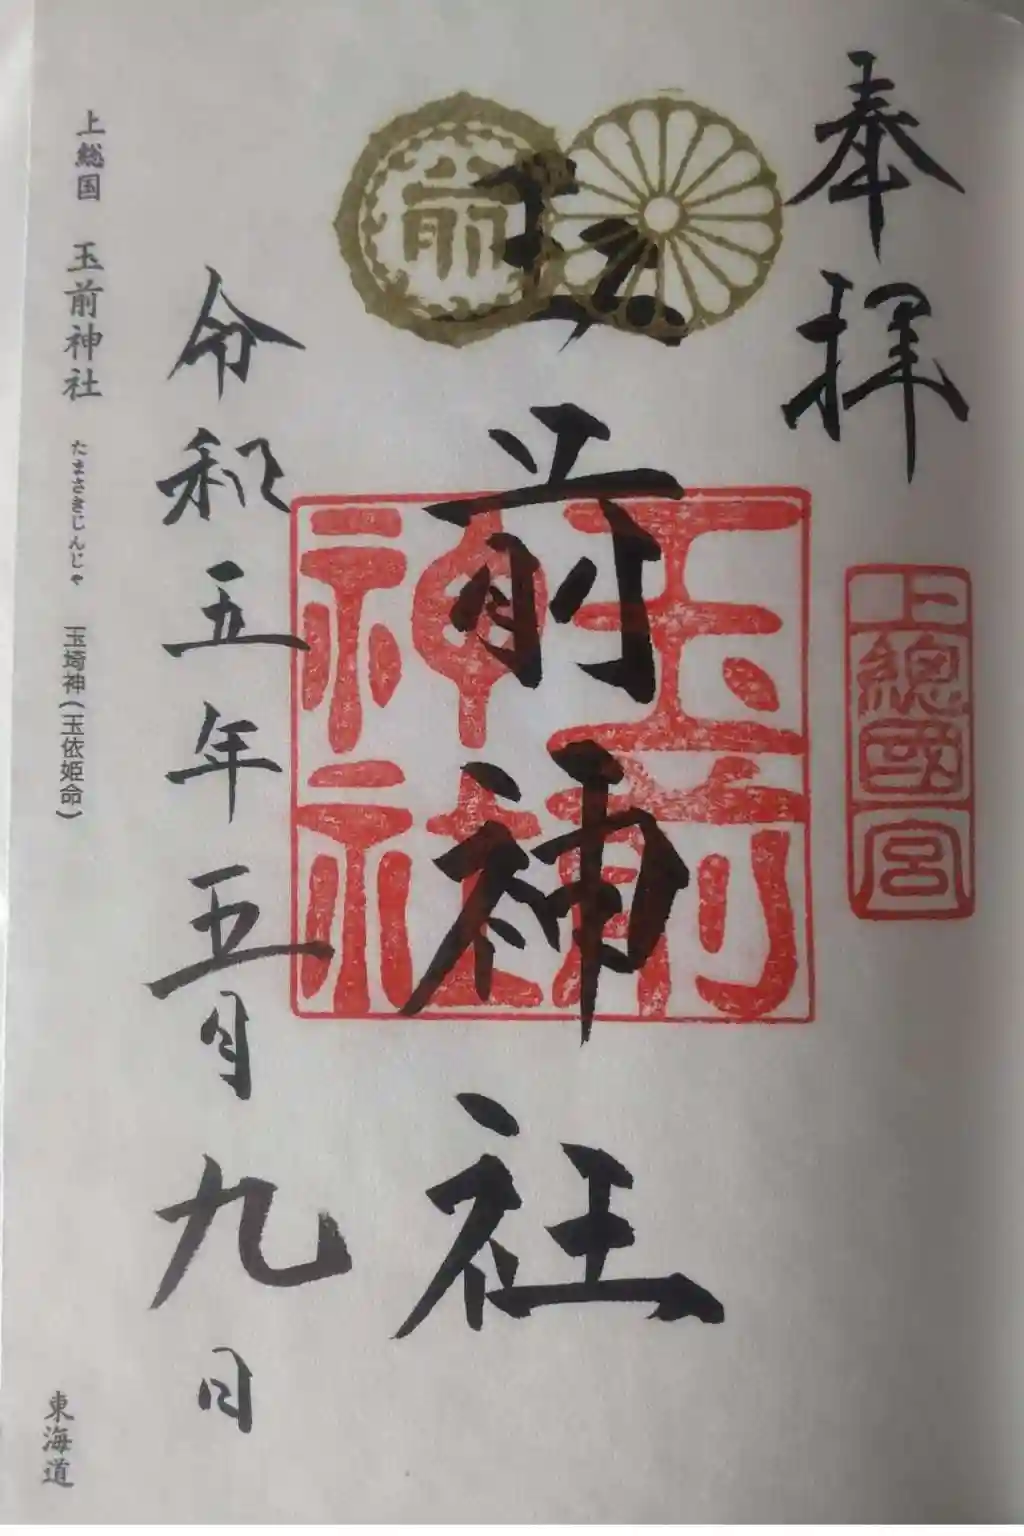 奉拝
上總國一宮
玉前神社
玉前神社
令和五年五月九日
上総国 玉前神社 たまさきじんじゃ 玉埼神(玉依姫命)
東海道